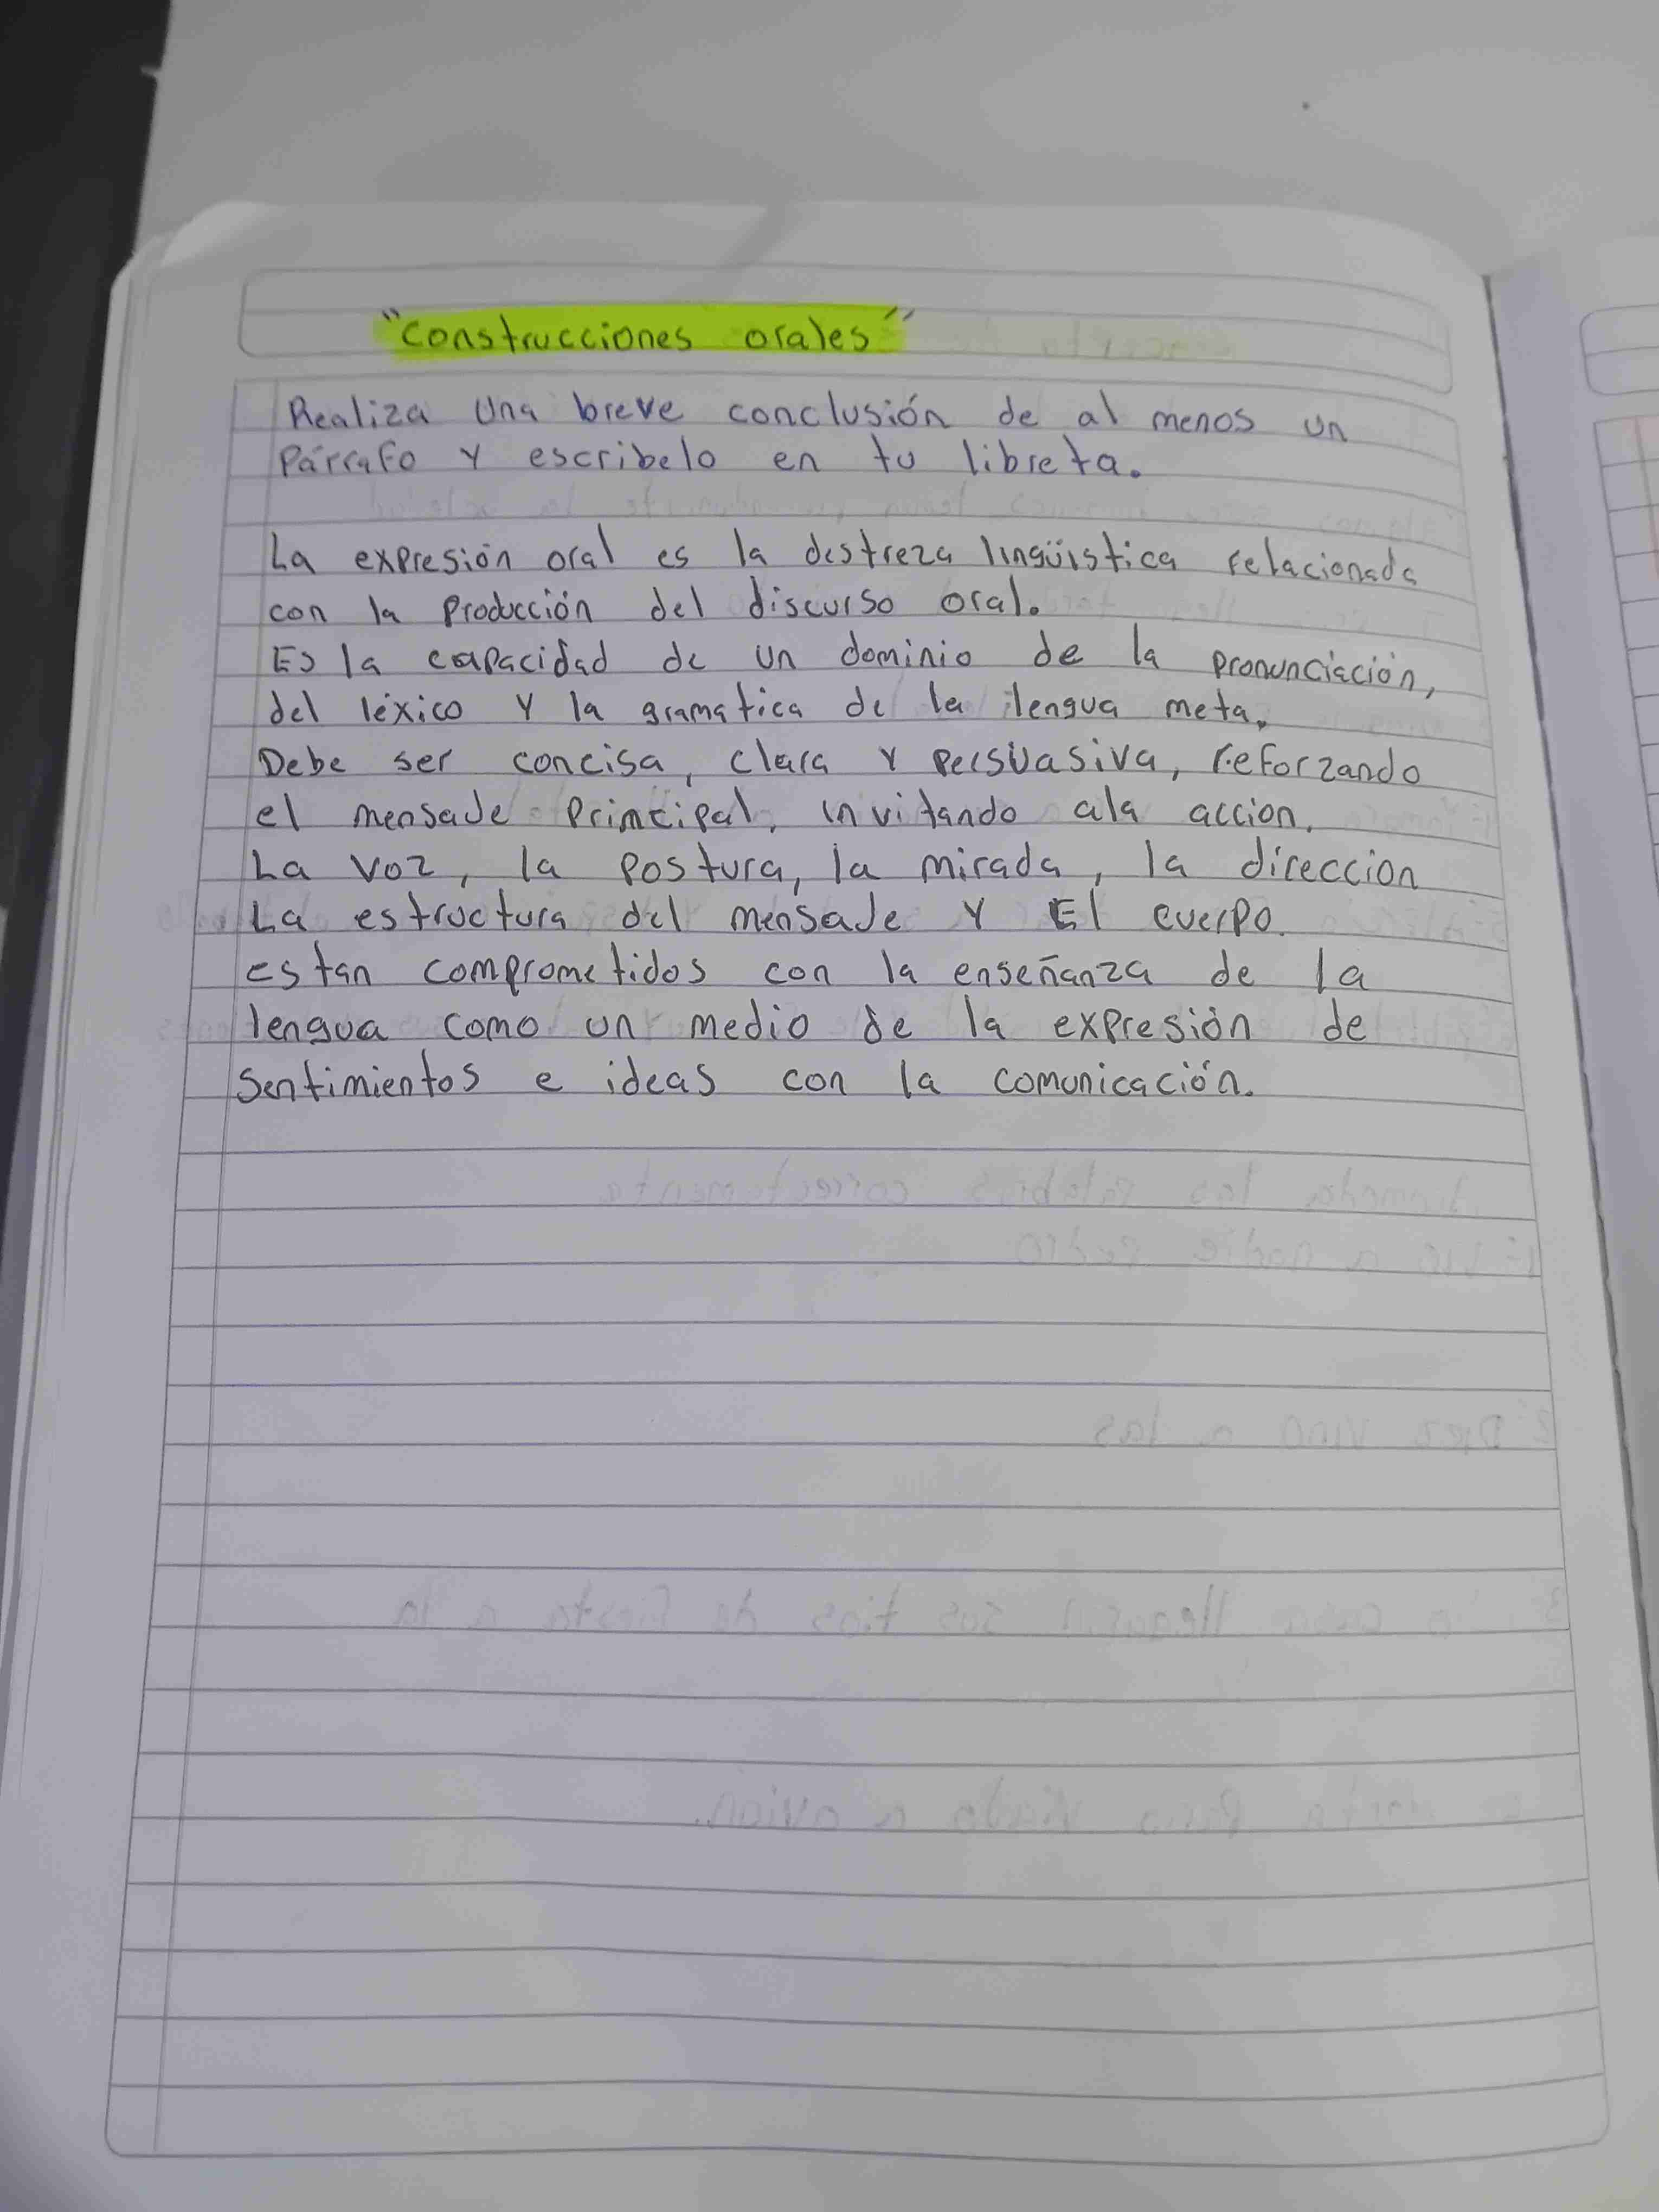 "Construcciones orales"
Realiza una breve conclusión de al menos un
Párrafo y escribelo en tu libreta.
La expresión oral es la destreza lingüistica relacionada
con la Producción del discurso oral.
Es la capacidad de un dominio de la pronunciación,
del léxico y la gramatica de la lengua meta.
Debe ser concisa, clara y persuasiva, reforzando
el mensaje Principal, invitando ala accion.
La voz, la postura, la mirada, la direccion
La estructura del mensaje y El cuerpo.
estan comprometidos con la enseñanza de la
lengua como un medio de la expresión de
sentimientos e ideas con la comunicación.